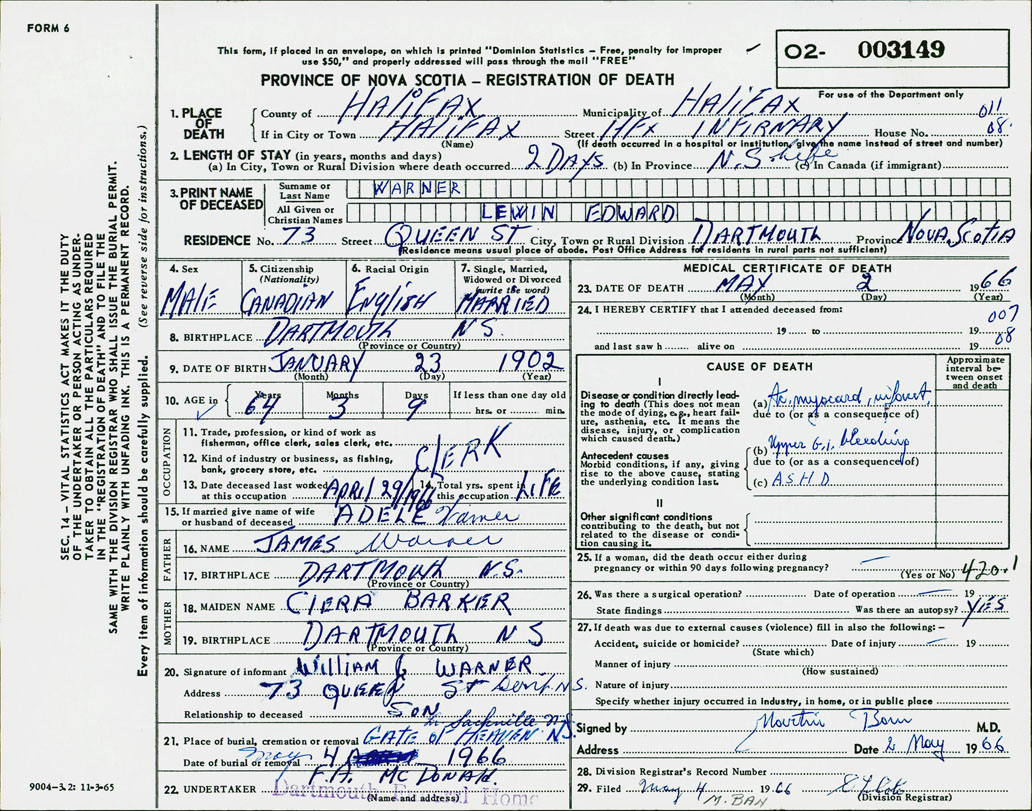 FORM 6
This form, if placed in an envelope, on which is printed "Dominion Statistics – Free, penalty for improper
use $50," and properly addressed will pass through the mail "FREE"
O2- 003149
For use of the Department only
PROVINCE OF NOVA SCOTIA – REGISTRATION OF DEATH
1. PLACE OF DEATH
County of HALIFAX Municipality of HALIFAX 011
If in City or Town HALIFAX Street HFX INFIRMARY House No. 08
(Name) (If death occurred in a hospital or institution, give the name instead of street and number)
2. LENGTH OF STAY (in years, months and days)
(a) In City, Town or Rural Division where death occurred 2 DAYS (b) In Province N.S. life (c) In Canada (if immigrant)
3. PRINT NAME OF DECEASED
Surname or Last Name WARNER
All Given or Christian Names LEWIN EDWARD
RESIDENCE No. 73 Street QUEEN ST City, Town or Rural Division DARTMOUTH Province NOVA SCOTIA
(Residence means usual place of abode. Post Office Address for residents in rural parts not sufficient)
4. Sex MALE
5. Citizenship (Nationality) CANADIAN
6. Racial Origin English
7. Single, Married, Widowed or Divorced (write the word) MARRIED
8. BIRTHPLACE DARTMOUTH N.S.
(Province or Country)
9. DATE OF BIRTH JANUARY 23 1902
(Month) (Day) (Year)
10. AGE in Years Months Days If less than one day old
64 3 9 hrs. or min.
OCCUPATION
11. Trade, profession, or kind of work as fisherman, office clerk, sales clerk, etc.
CLERK
12. Kind of industry or business, as fishing, bank, grocery store, etc.
13. Date deceased last worked at this occupation APRIL 29/1966
14. Total yrs. spent in this occupation LIFE
15. If married give name of wife or husband of deceased ADELE
FATHER
16. NAME JAMES Warner
17. BIRTHPLACE DARTMOUTH N.S.
(Province or Country)
MOTHER
18. MAIDEN NAME CLERA BARKER
19. BIRTHPLACE DARTMOUTH N S
(Province or Country)
20. Signature of informant William WARNER
Address 73 QUEEN ST Dart. N.S.
Relationship to deceased SON
21. Place of burial, cremation or removal GATE OF HEAVEN Sackville N.S.
Date of burial or removal May 4 1966
22. UNDERTAKER F.A. McDONALD
Dartmouth Funeral Home
(Name and address)
MEDICAL CERTIFICATE OF DEATH
23. DATE OF DEATH MAY 2 1966
(Month) (Day) (Year)
24. I HEREBY CERTIFY that I attended deceased from: 007
19 to 19
08
and last saw h alive on 19
CAUSE OF DEATH
Approximate interval between onset and death
I
Disease or condition directly leading to death (This does not mean the mode of dying, e.g., heart failure, asthenia, etc. It means the disease, injury, or complication which caused death.)
(a) Ac. myocard. infarct.
due to (or as a consequence of)
Antecedent causes
Morbid conditions, if any, giving rise to the above cause, stating the underlying condition last.
(b) Upper G.I. bleeding
due to (or as a consequence of)
(c) ASHD
II
Other significant conditions
contributing to the death, but not related to the disease or condition causing it.
25. If a woman, did the death occur either during
pregnancy or within 90 days following pregnancy? –
(Yes or No) 420.1
26. Was there a surgical operation? Date of operation – 19
State findings Was there an autopsy? YES
27. If death was due to external causes (violence) fill in also the following: –
Accident, suicide or homicide? Date of injury – 19
(State which)
Manner of injury
(How sustained)
Nature of injury
Specify whether injury occurred in industry, in home, or in public place
Signed by M.D.
Address Date 2 May 1966
28. Division Registrar's Record Number
29. Filed May 4 1966
(Division Registrar)
M. BAN
SEC. 14 – VITAL STATISTICS ACT MAKES IT THE DUTY
OF THE UNDERTAKER OR PERSON ACTING AS UNDER-
TAKER TO OBTAIN ALL THE PARTICULARS REQUIRED
IN THE "REGISTRATION OF DEATH" AND TO FILE THE
SAME WITH THE DIVISION REGISTRAR WHO SHALL ISSUE THE BURIAL PERMIT.
WRITE PLAINLY WITH UNFADING INK. THIS IS A PERMANENT RECORD.
Every item of information should be carefully supplied. (See reverse side for instructions.)
9004–3.2: 11-3-65